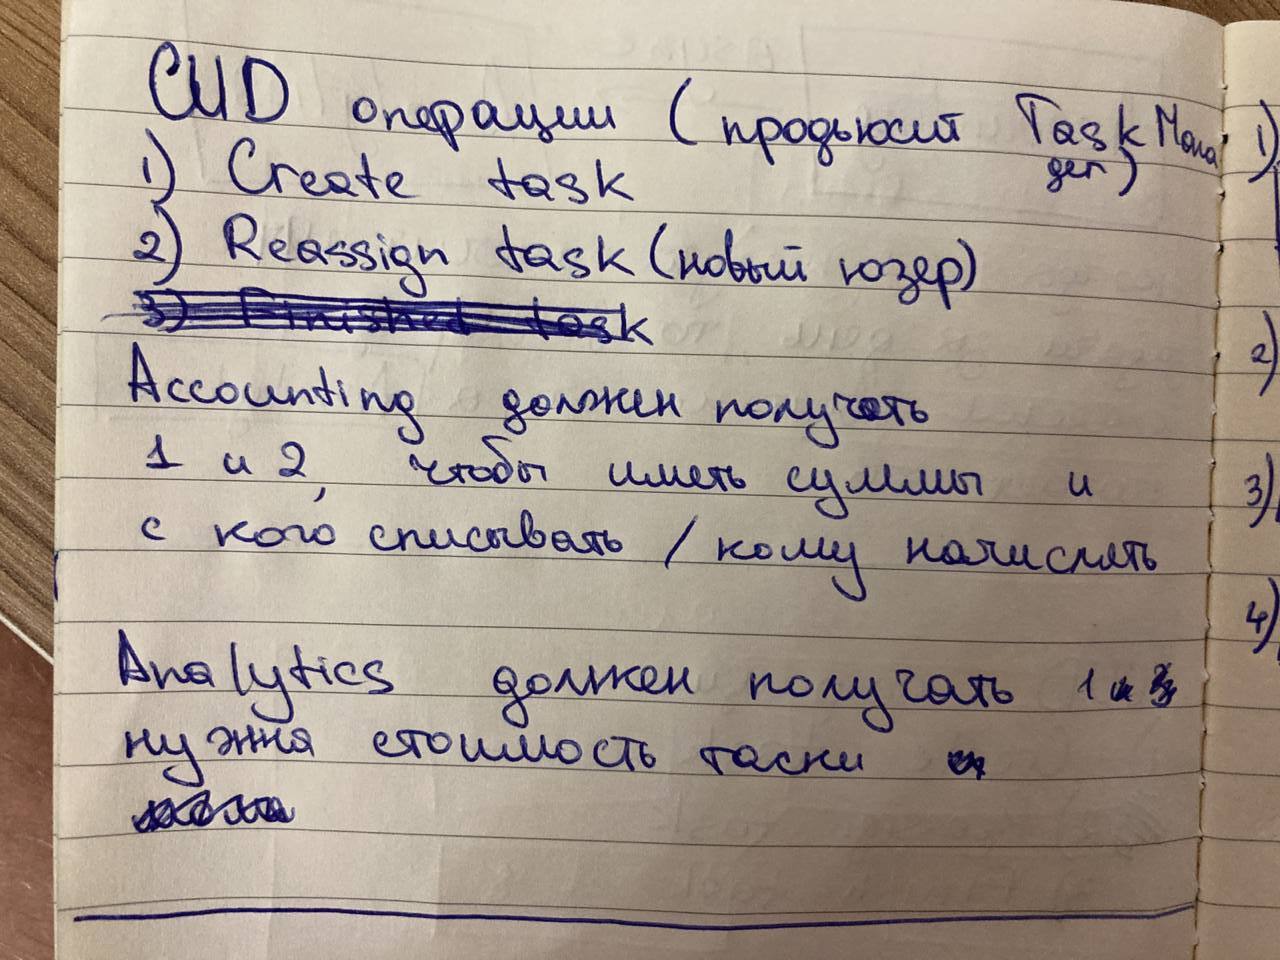 CUD операции (продьюсит TaskMена
дег)
1) Create task
2) Reassign task (новый юзер)
3) Finished task
Accounting должен получать
1 и 2, чтобы иметь суммы и
с кого списывать / кому начислять
Analytics должен получать 1
нужня стоимость таски
1)
2)
3)
4)